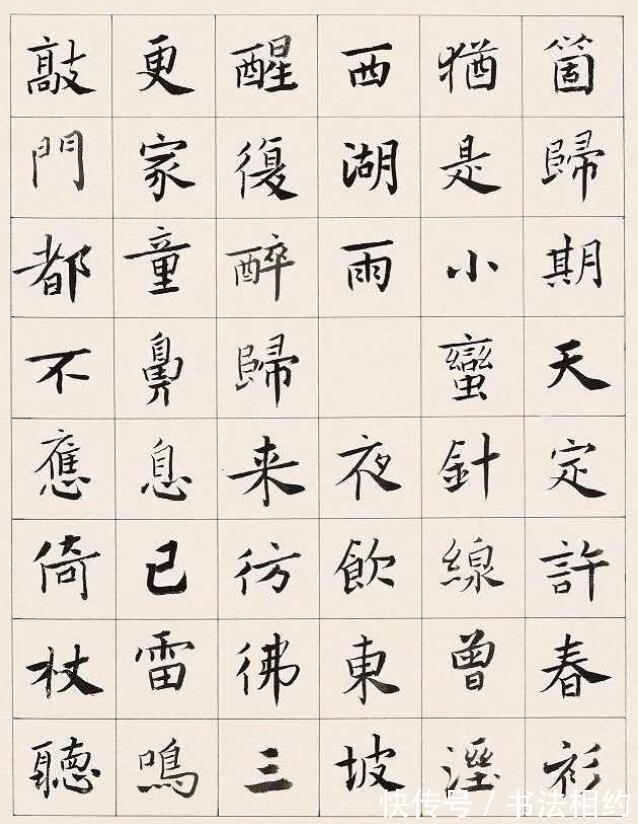 箇歸期天定許春衫
猶是小蠻針線曾溼
西湖雨 夜飲東坡
醒復醉歸来彷彿三
更家童鼻息已雷鳴
敲門都不應倚杖聽
快传号/书法相约